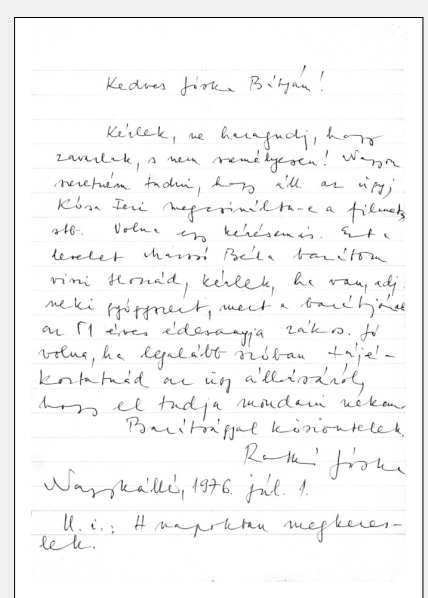 Kedves Jóska Bátyám!
Kérlek, ne haragudj, hogy
zavarlak, s nem személyesen! Nagyon
szeretném tudni, hogy áll az ügy,
Kósa Feri megcsinálta-e a filmet,
stb. Volna egy kérésem is. Ezt a
levelet Béla barátom
viszi Hozzád, kérlek, ha van, adj
neki gyógyszert, mert a barátjának
az 51 éves édesanyja rákos. Jó
volna, ha legalább szóban tájé-
koztatnád az ügy állásáról,
hogy el tudja mondani nekem.
Barátsággal köszöntelek
Ratkó Jóska
Nagykálló, 1976. júl. 1.
U. i.: A napokban megkeres-
lek.